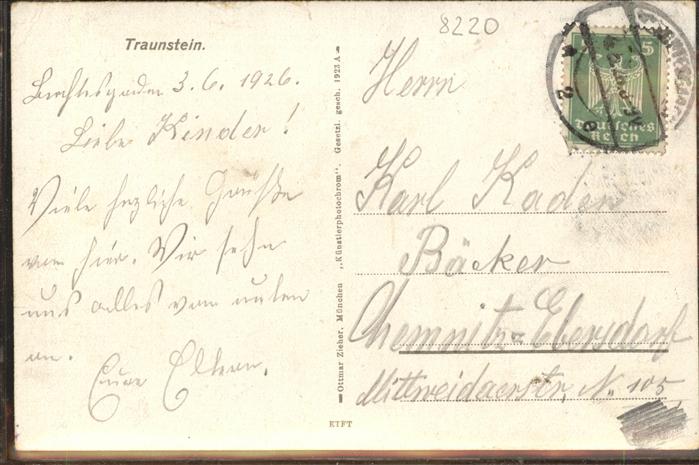 8220
Traunstein.
Berchtesgaden 3. 6. 1926.
Liebe Kinder!
Viele herzliche Grüße
von hier. Wir sehn
uns alles von unten
an.
Eure Eltern.
Ottmar Zieher, München „Künstlerphotochrom". Gesetzl. gesch. 1923 A
Herrn
Karl Kaden
Bäcker
Chemnitz-Ebersdorf
Mittweidaerstr. N. 105
5
Deutsches
Reich